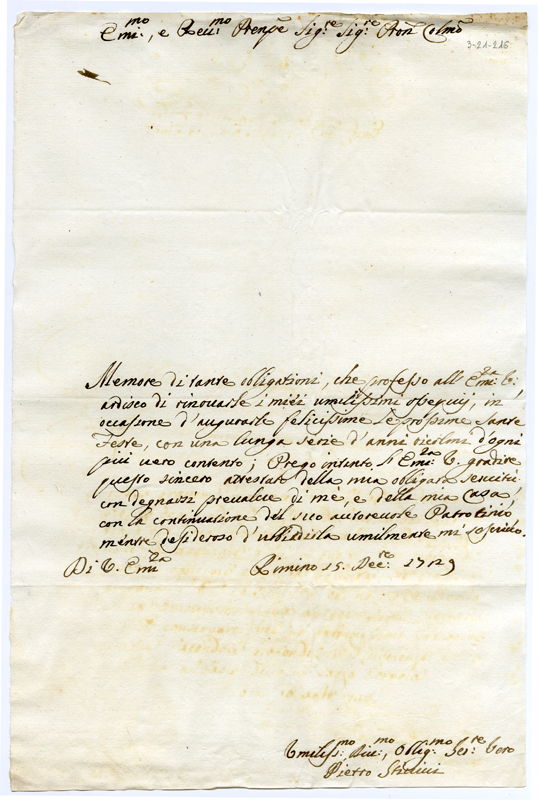 Emi:mo, e Reu:mo Prenpe Sig:re Sig:re Pron Colmo
3-21-216
Memore di tante obligationi, che professo all' Emi:za V.
ardisco di rinouarle i miei umilissimi ossequij, in
occasione d'augurarle felicissime le prossime Sante
Feste, con una lunga serie d'anni ricolmi d'ogni
più uero contento; Prego intanto l' Emi:za V. gradire
questo sincero attestato della mia obligata seruitù
con degnarsi preualer di mè, e della mia Casa,
con la continuatione del suo autoreuole Patrotinio
mentre desideroso d'ubbidirla umilmente mi soscriuo.
Di V. Emi:za Rimino 15. Dec:re 1729
Vmiliss:mo Diu:mo, Oblig:mo Ser:re Vero
Pietro